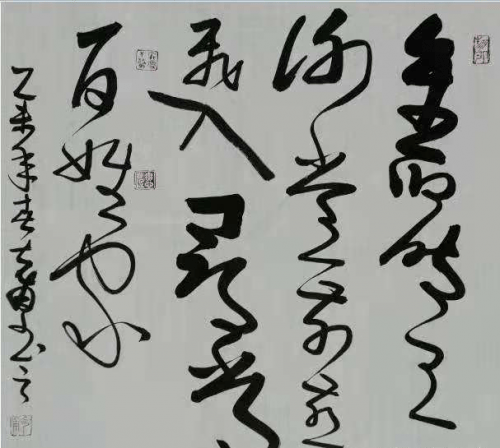 舊時王
謝堂前燕
飛入尋常
百姓家
乙未年春